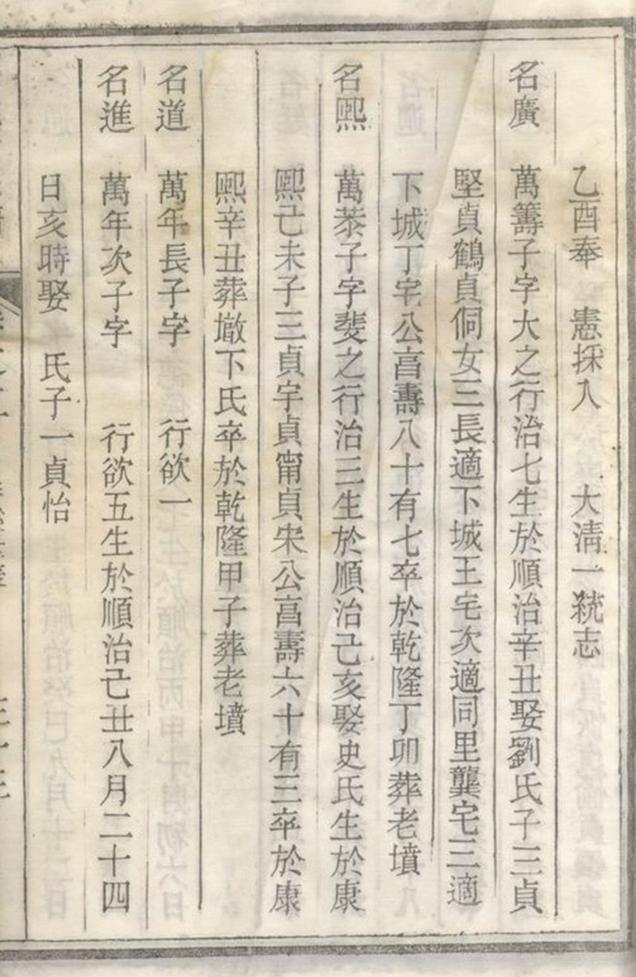 乙酉奉　憲採入　　大清一統志
名廣　萬籌子字大之行治七生於順治辛丑娶劉氏子三貞
堅貞鶴貞侗女三長適下城王宅次適同里龔宅三適
下城丁宅公亯壽八十有七卒於乾隆丁卯葬老墳
名熈　萬恭子字斐之行治三生於順治己亥娶史氏生於康
熈己未子三貞宇貞甯貞宋公亯壽六十有三卒於康
熈辛丑葬墩下氏卒於乾隆甲子葬老墳
名道　萬年長子字　　行欲一
名進　萬年次子字　　行欲五生於順治己丑八月二十四
日亥時娶　氏子一貞怡